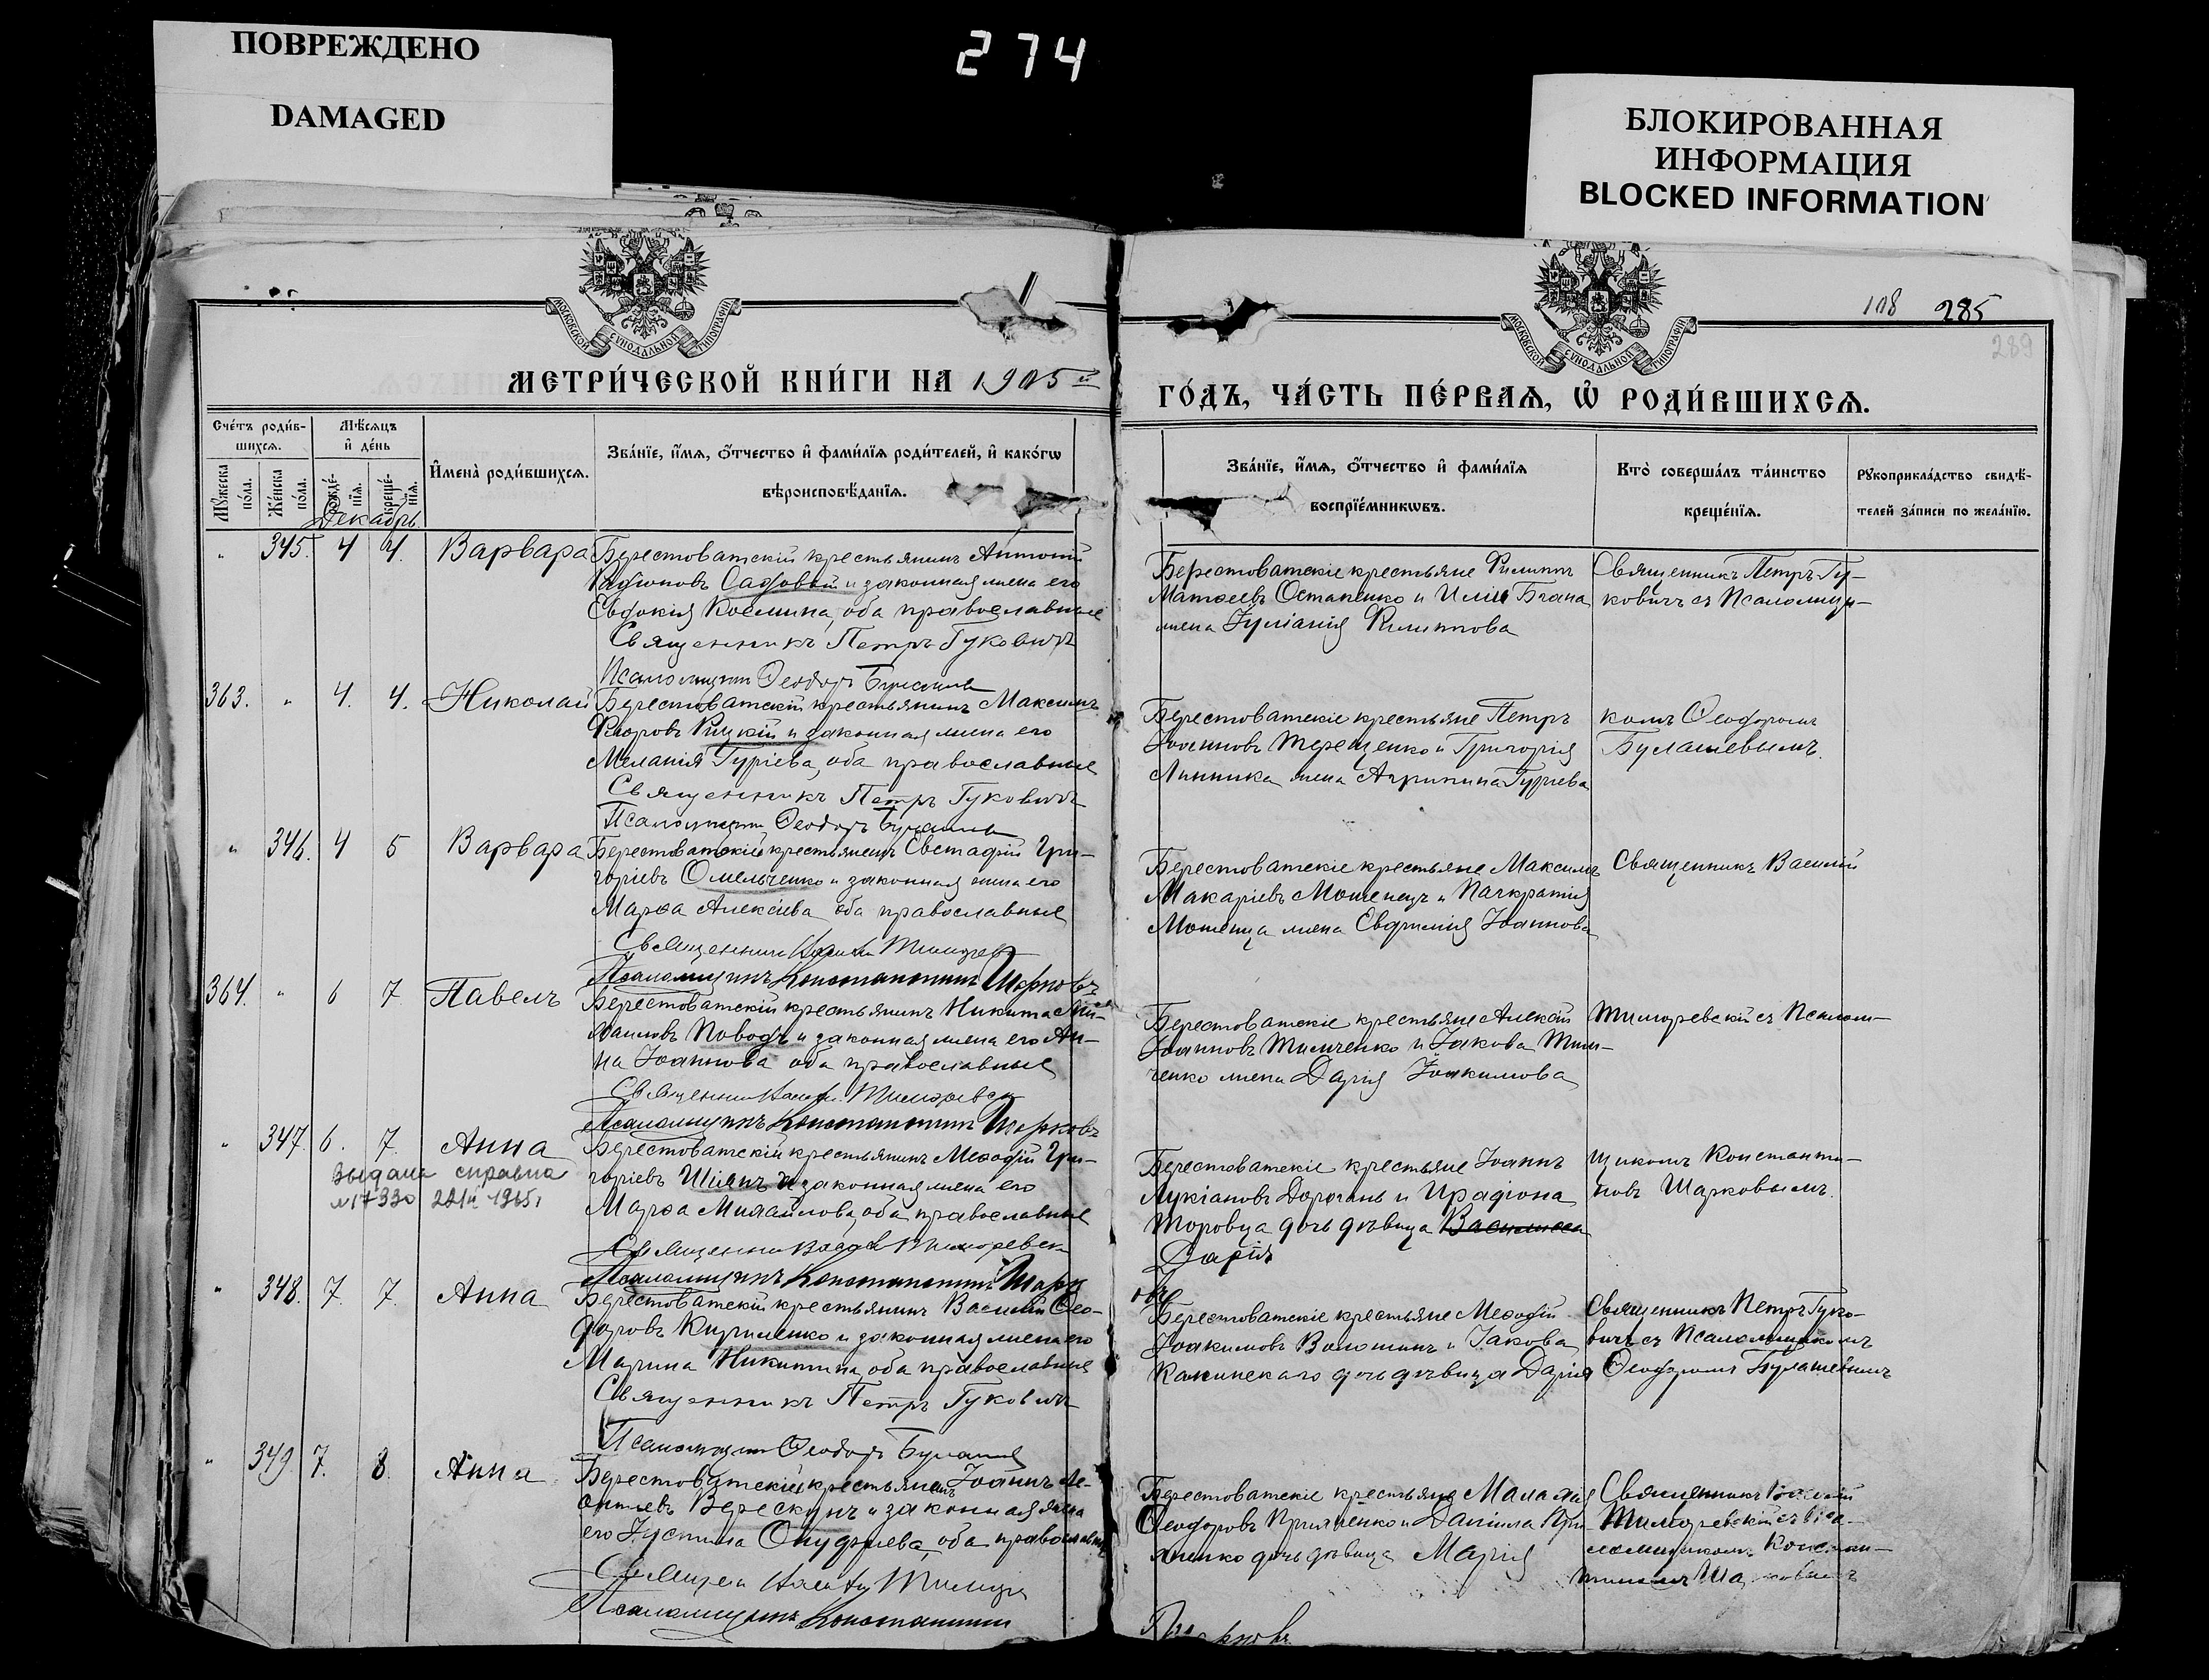 ПОВРЕЖДЕНО
DAMAGED
274
БЛОКИРОВАННАЯ
ИНФОРМАЦИЯ
BLOCKED INFORMATION
МОСКОВСКОЙ СѴНОДАЛЬНОЙ ТИПОГРАФІИ
МОСКОВСКОЙ СѴНОДАЛЬНОЙ ТИПОГРАФІИ
108 285
289
МЕТРИ́ЧЕСКОЙ КНИ́ГИ НА 1905 й
ГО́ДЪ, ЧА́СТЬ ПЕ́РВАЯ, Ѡ РОДИ́ВШИХСЯ.
Сче́тъ роди́в-
шихся.
Мꙋ́жеска по́ла.
Же́нска по́ла.
Мѣ́сяцъ
и҆ де́нь
рожде́-
нїя.
креще́-
нїя.
И҆мена̀ роди́вшихся.
Зва́нїе, и҆́мя, ѻ҆́тчество и҆ фами́лїя роди́телей, и҆ како́гѡ
вѣроисповѣ́данїя.
Зва́нїе, и҆́мя, ѻ҆́тчество и҆ фами́лїя
воспрїе́мникѡвъ.
Кто̀ соверша́лъ та́инство
креще́нїя.
Рꙋкоприкла́дство свидѣ́-
телей за́писи по жела́нїю.
Декабрь
" 345. 4 4. Варвара
Берестоватскій крестьянинъ Антоній
Родіоновъ Садовый и законная жена его
Евдокія Космина, оба православные
Священникъ Петръ Гуковичъ
Псаломщикъ Ѳеодоръ
Берестоватскіе крестьяне Филиппъ
Матѳеевъ Остапенко и Иліи
жена Іуліанія Филиппова
Священникъ Петръ Гу-
ковичъ съ Псаломщи-
363. " 4. 4. Николай
Берестоватскій крестьянинъ Максимъ
и законная жена его
Меланія Гуріева, оба православные
Священникъ Петръ Гуковичъ
Псаломщикъ Ѳеодоръ
Берестоватскіе крестьяне Петръ
Іоанновъ Терещенко и Григорія
Линника жена Агрипина Гуріева
комъ Ѳеодоромъ
Булашевымъ.
" 346. 4 5 Варвара
Берестоватскій крестьянинъ Евстафій Гри-
горіевъ Омельченко и законная жена его
Марѳа Алексіева оба православные
Священникъ
Псаломщикъ Константинъ Шарковъ
Берестоватскіе крестьяне Максимъ
Макаріевъ Мошенецъ и Панкратія
Мошенца жена Евфимія Іоаннова
Священникъ Василій
364. " 6 7 Павелъ
Берестоватскій крестьянинъ Никита Ми-
хаиловъ Поводъ и законная жена его Ан-
на Іоаннова оба православные
Священникъ
Псаломщикъ Константинъ Шарковъ
Берестоватскіе крестьяне Алексій
Іоанновъ Тимченко и Іакова Тим-
ченко жена Дарія Іоакимова
съ Псалом-
" 347 6. 7. Анна
Выдана справка
№17330 1965г
Берестоватскій крестьянинъ Меѳодій Гри-
горіевъ Шіянъ и законная жена его
Марѳа Михаилова, оба православные
Священникъ
Псаломщикъ Константинъ Шарк
овъ
Берестоватскіе крестьяне Іоаннъ
Лукіановъ Дорогань и Иродіона
дочь дѣвица Василисса
Дарія
щикомъ Константи-
новъ Шарковымъ.
" 348. 7. 7. Анна
Берестоватскій крестьянинъ Василій Ѳео-
доровъ Кириленко и законная жена его
Марина Никитина, оба православные
Священникъ Петръ Гуковичъ
Псаломщикъ Ѳеодоръ
Берестоватскіе крестьяне Меѳодій
Іоакимовъ Волошинъ и Іакова
дочь дѣвица Дарія
Священникъ Петръ Гуко-
вичъ съ Псаломщикомъ
Ѳеодоромъ Булашевымъ
" 349. 7. 8. Анна
Берестоватскій крестьянинъ Іоаннъ Ле-
онтіевъ Верескунъ и законная жена
его Іустина Онуфріева, оба православные
Псаломщикъ Константинъ
Шарковъ
Берестоватскіе крестьяне Малахія
Ѳеодоровъ и Даніила При-
дочь дѣвица Марія
Священникъ Василій
ломщикомъ Констан-